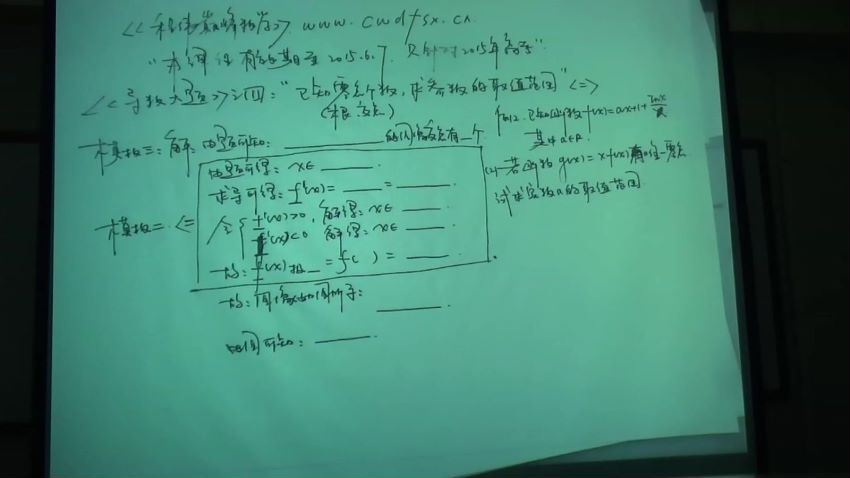 www.cwdfsx.cn
"本 有效期至2015.6.7, 只针对2015年高考"
<<导数大题>>之四:"已知零点个数,求参数的取值范围" <=>
例12.已知函数f(x)=ax+1+lnx/x
其中a∈R.
(1)若函数g(x)=x·f(x)有唯一零点
试求实数a的取值范围
模板三:解:由题可知: 的图像 有 个
模板二 <=
由题可得:x∈
求导可得:f'(x)= =
令{f'(x)>0,解得:x∈
f'(x)<0 解得:x∈
故:f(x)极 =f( )=
故:图像如图所示:
由图可知: